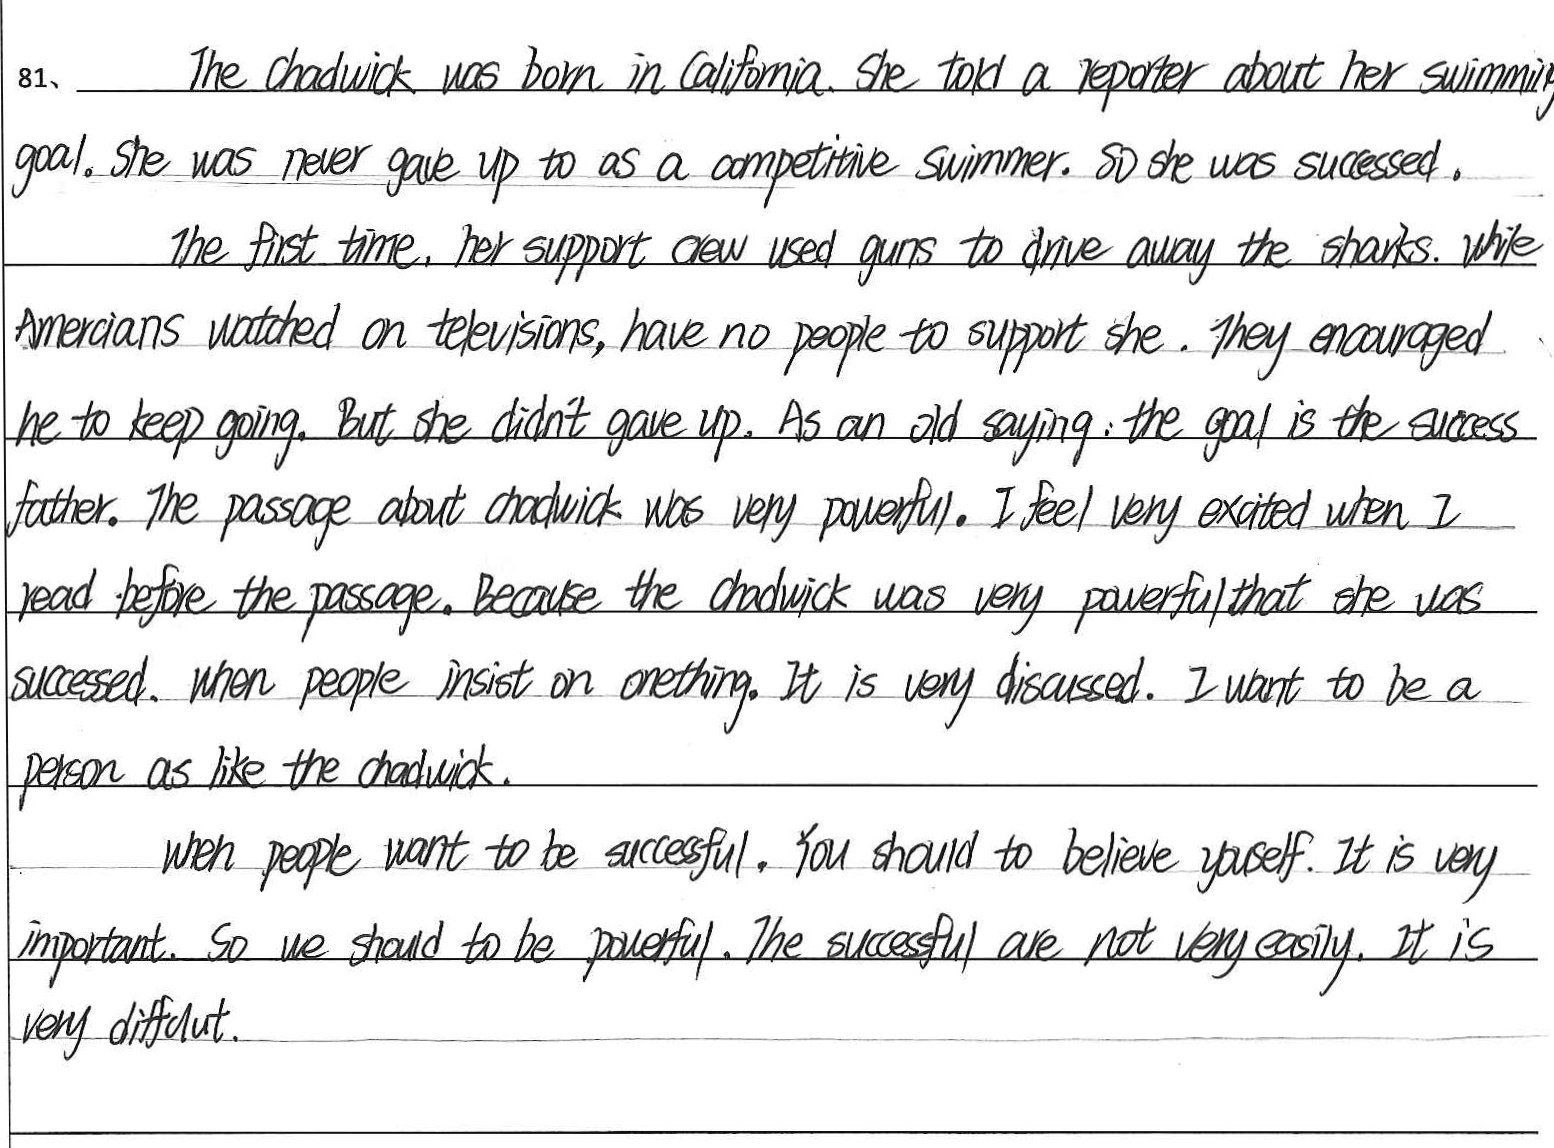 81、 The Chadwick was born in California. She told a reporter about her swimming
goal. She was never gave up to as a competitive swimmer. So she was successed.
The first time, her support crew used guns to drive away the sharks. While
Amercians watched on televisions, have no people to support she. They encouraged
he to keep going. But she didn't gave up. As an old saying: the goal is the success
father. The passage about chadwick was very powerful. I feel very excited when I
read before the passage. Because the chadwick was very powerful that she was
successed. When people insist on onething. It is very discussed. I want to be a
person as like the chadwick.
When people want to be successful. You should to believe youself. It is very
important. So we should to be powerful. The successful are not very easily. It is
very diffclut.